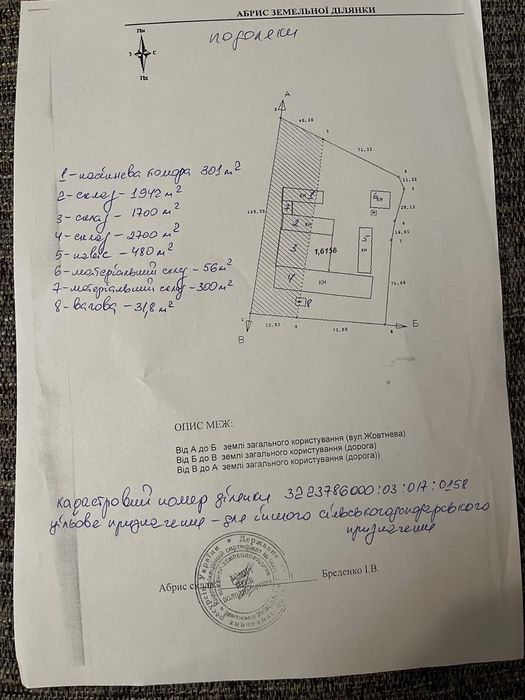 АБРИС ЗЕМЕЛЬНОЇ ДІЛЯНКИ
подоляки
Пн
З С
Пд
А
40,28
71,33
1 - насіннєва комора 301 м²
2 - склад - 1942 м²
3 - склад - 1700 м²
4 - склад - 2700 м²
5 - навес - 480 м²
6 - матеріальний склад - 56 м²
7 - матеріальний склад - 300 м²
8 - вагова - 31,8 м²
1
7
2
3
1,6156
4
КН
5
КН
6
8
75,60
В
Б
ОПИС МЕЖ:
Від А до Б землі загального користування (вул.Жовтнева)
Від Б до В землі загального користування (дорога)
Від В до А землі загального користування (дорога))
кадастровий номер ділянки 3223786000:03:017:0158
цільове призначення - для іншого сільськогосподарського
призначення
Абрис склав Бреденко І.В.